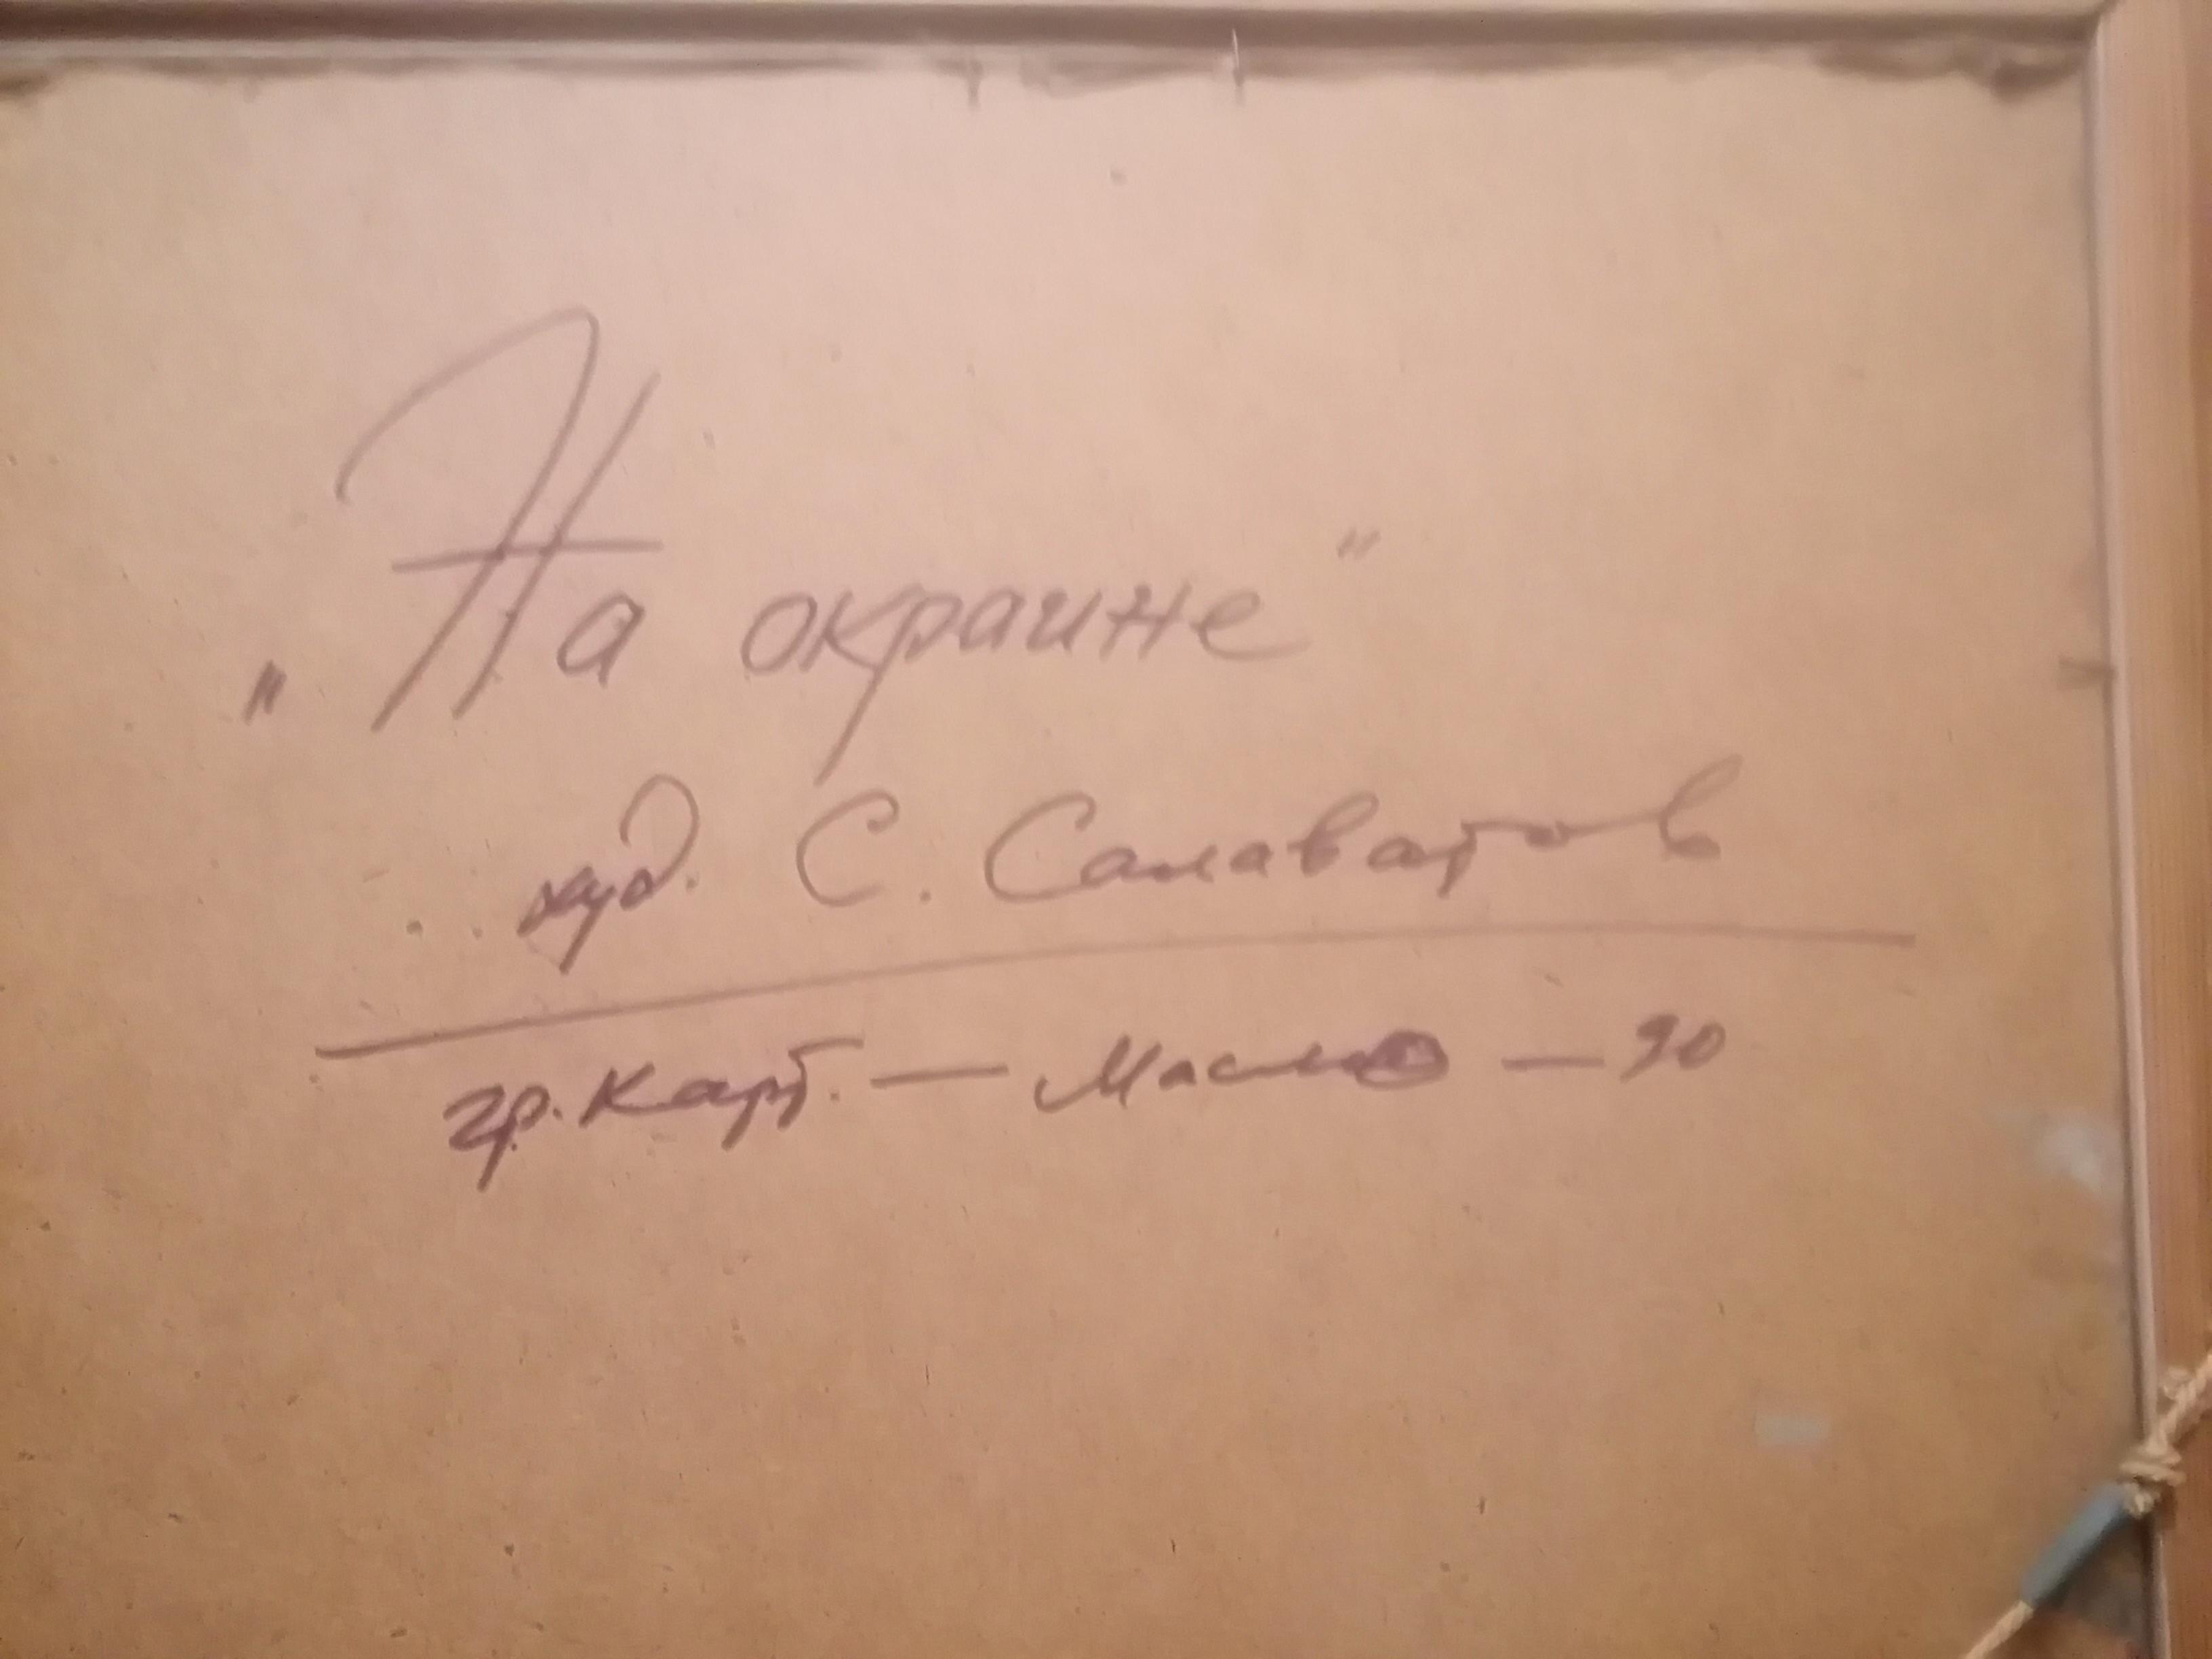 „На окраине"
худ. С. Салаватов
гр. карт. — Масло — 90